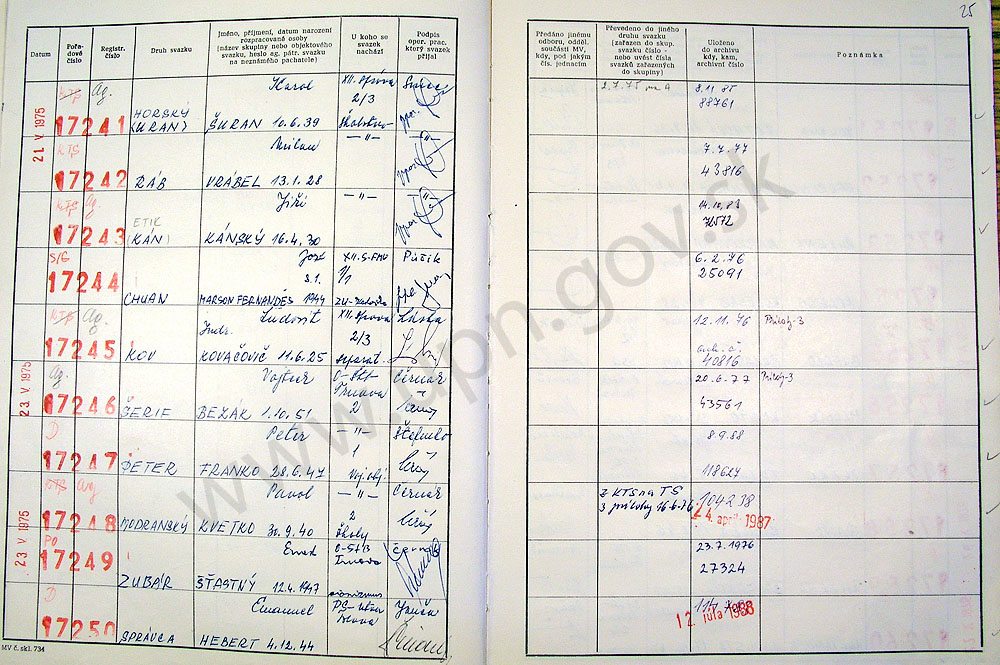 25
Datum
Pořa-
dové
číslo
Registr.
číslo
Druh svazku
Jméno, příjmení, datum narození
rozpracované osoby
(název skupiny nebo objektového
svazku, heslo eg. pátr. svazku
na neznámého pachatele)
U koho se
svazek
nachází
Podpis
oper. prac.
který svazek
přijal
Předáno jinému
odboru, odděl.
součásti MV,
kdy, pod jakým
čís. jednacím
Převedeno do jiného
druhu svazku
(zařazen do skup.
svazku číslo -
nebo uvést čísla
svazků zařazených
do skupiny)
Uloženo
do archivu
kdy, kam,
archivní číslo
Poznámka
21. V. 1975
KTS Ag.
17241
HORSKÝ
(URAN)
Karol
ŠURAN 10.6.39
XII. Správa
2/3
2.7.75 na A
8.11.85
88761
KTS
17242
RÁB
Milan
VRÁBEL 13.1.28
— " —
— " —
7.7.77
43816
KTS Ag.
17243
ETIK
(KÁN)
Jiří
KÁNSKÝ 16.4.30
— " —
— " —
14.10.83
S/G
17244
CHUAN
José
3.1.
MARSON FERNANDÉS 1944
XII. S-FMV
1/1
Púčik
6.2.76
25091
KTS Ag.
17245
KOV
Ľudovít
KOVAČOVIČ 11.6.25
XII. Správa
2/3
separat.
12.11.76
40816
Príloh-3
23. V. 1975
Ag.
17246
ŠERIF
Vojtech
BEZÁK 1.10.51
Trnava
2
Černák
20.6.77
43561
Príloh-3
D
17247
PETER
Peter
FRANKO 28.6.47
— " —
1
8.9.88
118627
KTS Ag.
17248
MODRANSKÝ
Pavol
KVETKO 30.9.40
— " —
2
školy
Černák
Z KTS na TS
3 prílohy 16.6.76
104238
24. apríl 1987
23. V. 1975
PO
17249
ZUBÁR
ŠŤASTNÝ 12.4.1947
O-ŠtB
Trnava
sionizmus
23.7.1976
27324
D
17250
SPRÁVCA
Emanuel
HEBERT 4.12.44
12. júla 1988
MV č. skl. 734
www.upn.gov.sk